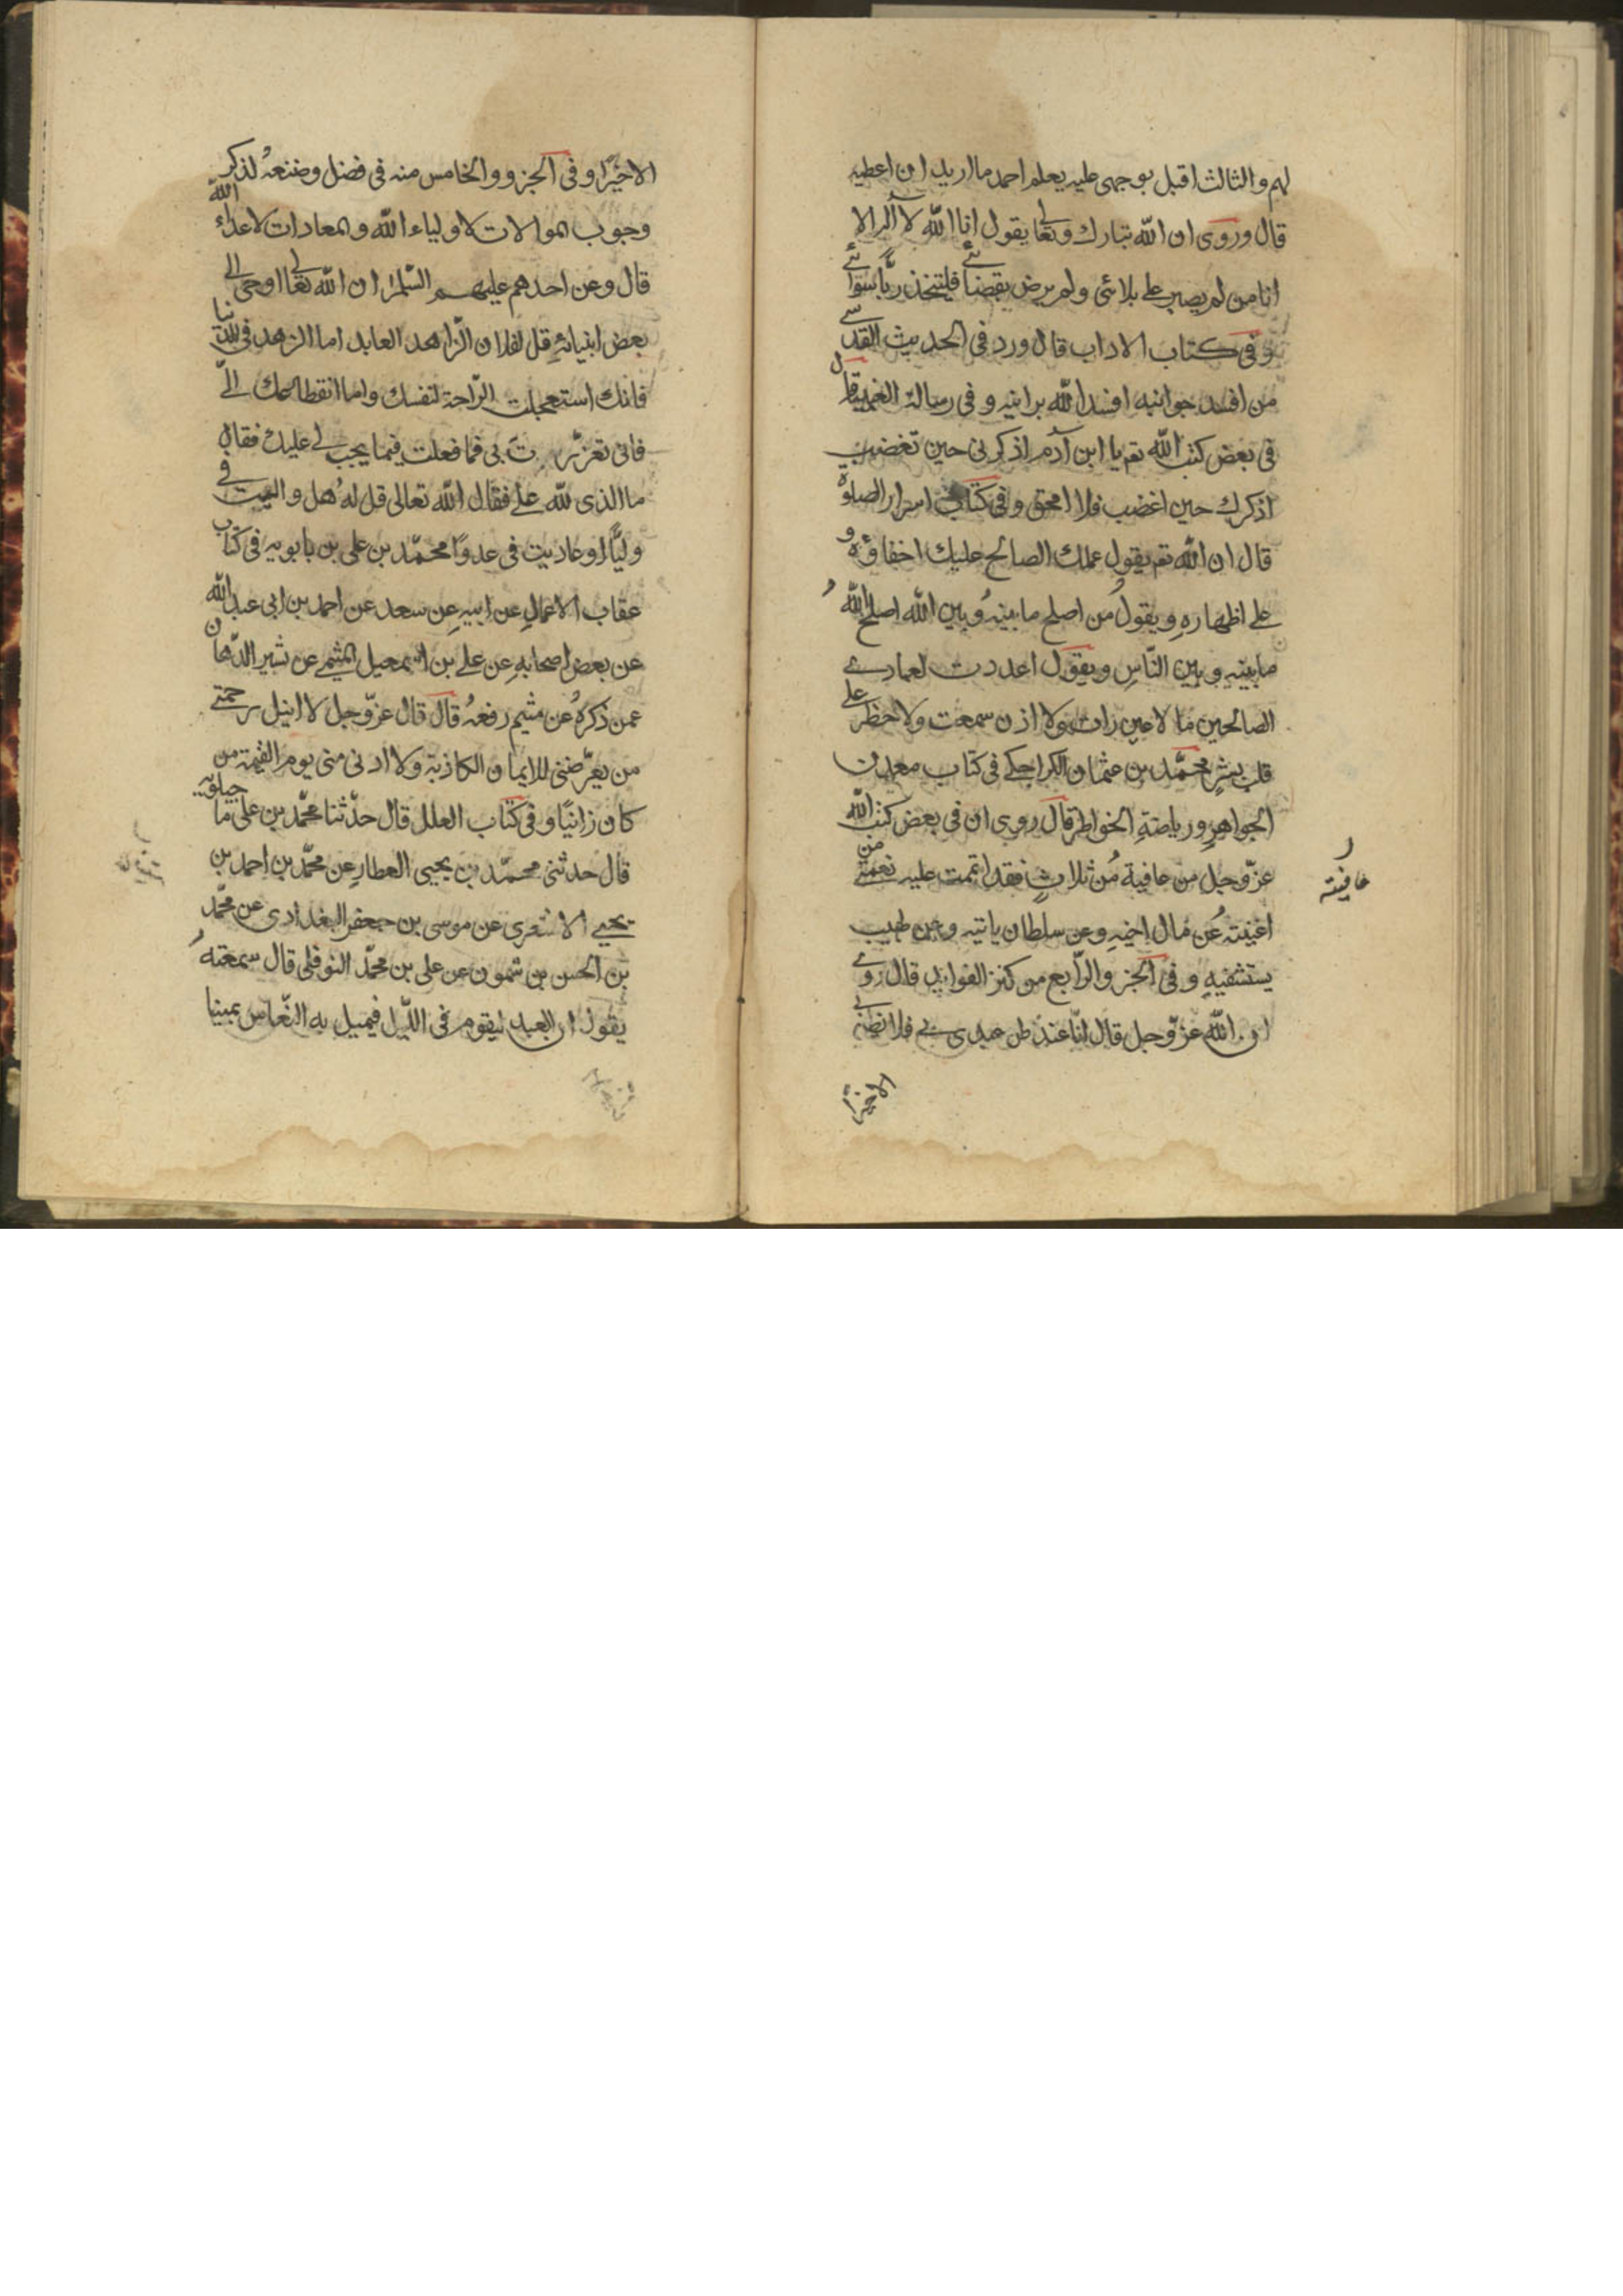 لهم والثالث اقبل بوجهى عليه يعلم احد ما اريد ان اعطيه
قال وروى ان الله تبارك وتعالى يقول انا الله لا اله الا
انا من لم يصبر على بلائى ولم يرض بقضائى فليتخذ ربا سوائى
وفى كتاب الاداب قال ورد فى الحديث القدسى
من افسد جوانيه افسد الله برانيه وفى رسالة الغيبة قال
فى بعض كتب الله تع يا ابن آدم اذكرنى حين تغضب
اذكرك حين اغضب فلا امحق وفى كتاب اسرار الصلوة
قال ان الله تع يقول عملك الصالح عليك اخفاؤه و
على اظهاره ويقول من اصلح ما بينه وبين الله اصلح الله
ما بينه وبين الناس ويقول اعددت لعبادى
الصالحين ما لا عين رات ولا اذن سمعت ولا خطر على
قلب بشر محمد بن عثمان الكراجكى فى كتاب معدن
الجواهر ورياضة الخواطر قال روى ان فى بعض كتب الله
عز وجل من عافية من ثلاث فقد اتممت عليه نعمتى من
اغنيته عن مال اخيه وعن سلطان ياتيه وعن طبيب
يستشفيه وفى الجزو الرابع من كنز الفوايد قال روى
ان الله عز وجل قال انا عند ظن عبدى بى فلا يظن بى
الا خيرا
عافيته
الا خيرا وفى الجزو والخامس منه فى فضل لذكر الله
وجوب الموالات لاولياء الله والمعادات لاعداء
قال وعن احدهم عليهم السلم ان الله تعالى اوحى الى
بعض انبيائه قل لفلان الزاهد العابد اما الزهد فى الدنيا
فانك استعجلت الراحة لنفسك واما انقطاعك الى
فانى تعززت بى فما فعلت فيما يجب لى عليك فقال
ما الذى لله على فقال الله تعالى قل له هل واليت فى
وليا او عاديت فى عدوا محمد بن على بن بابويه فى كتاب
عقاب الاعمال عن ابيه عن سعد عن احمد بن ابى عبد الله
عن بعض اصحابه عن على بن اسمعيل الميثمى عن بشير الدهان
عمن ذكره عن ميثم رفعه قال قال عز وجل لا انيل رحمتى
من يعرضنى للايمان الكاذبة ولا ادنى منى يوم القيمة من
كان زانيا وفى كتاب العلل قال حدثنا محمد بن على ماجيلويه
قال حدثنى محمد بن يحيى العطار عن محمد بن احمد بن
يحيى الاشعرى عن موسى بن جعفر البغدادى عن محمد
بن الحسن بن شمون عن على بن محمد النوفلى قال سمعته
يقول ان العبد ليقوم فى الليل فيميل به النعاس يمينا